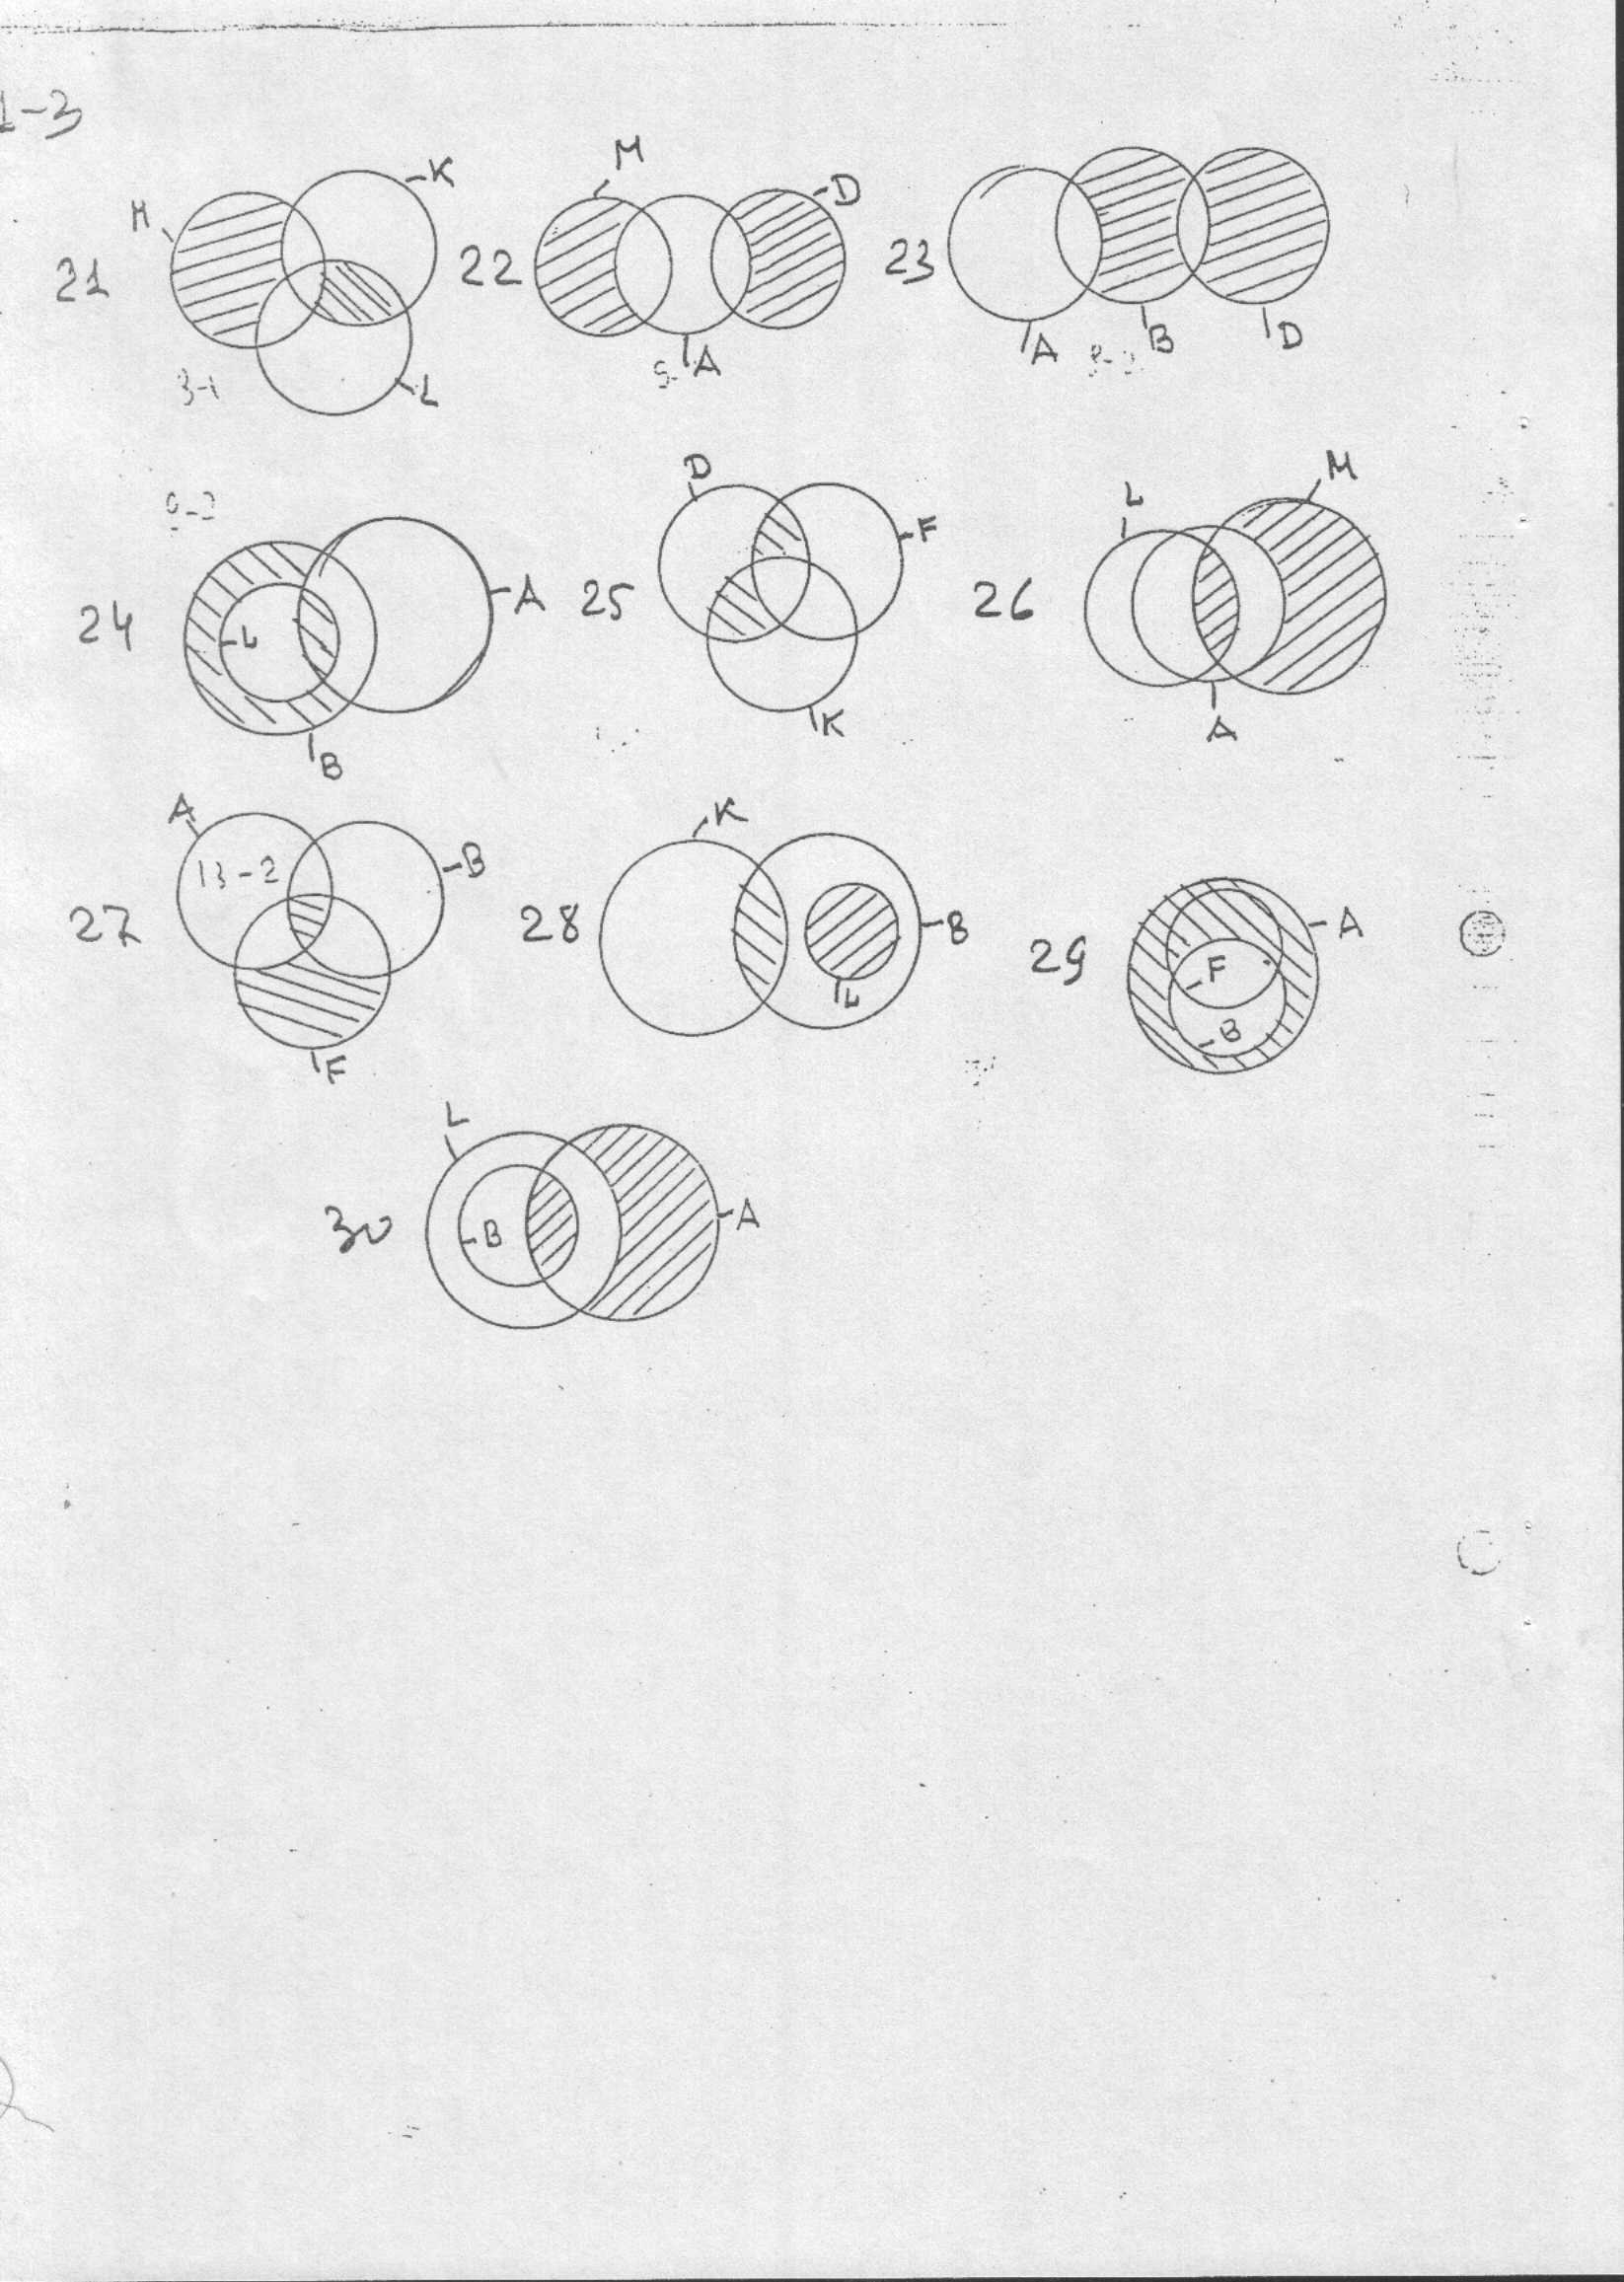 1-3
21 M K L 3-1
22 M A D
23 A B D
24 L B A
25 D F K
26 L A M
27 A 13-2 B F
28 K B L
29 A F B
30 L B A